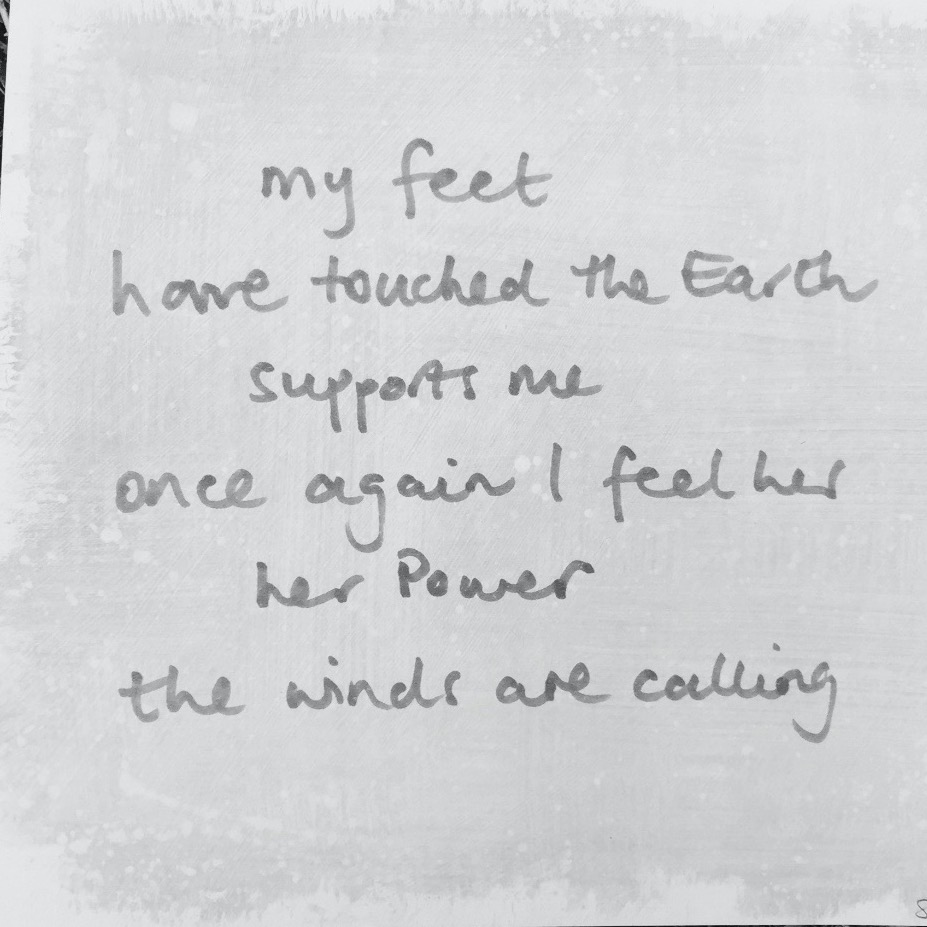 my feet
have touched the Earth
supports me
once again I feel her
her Power
the winds are calling